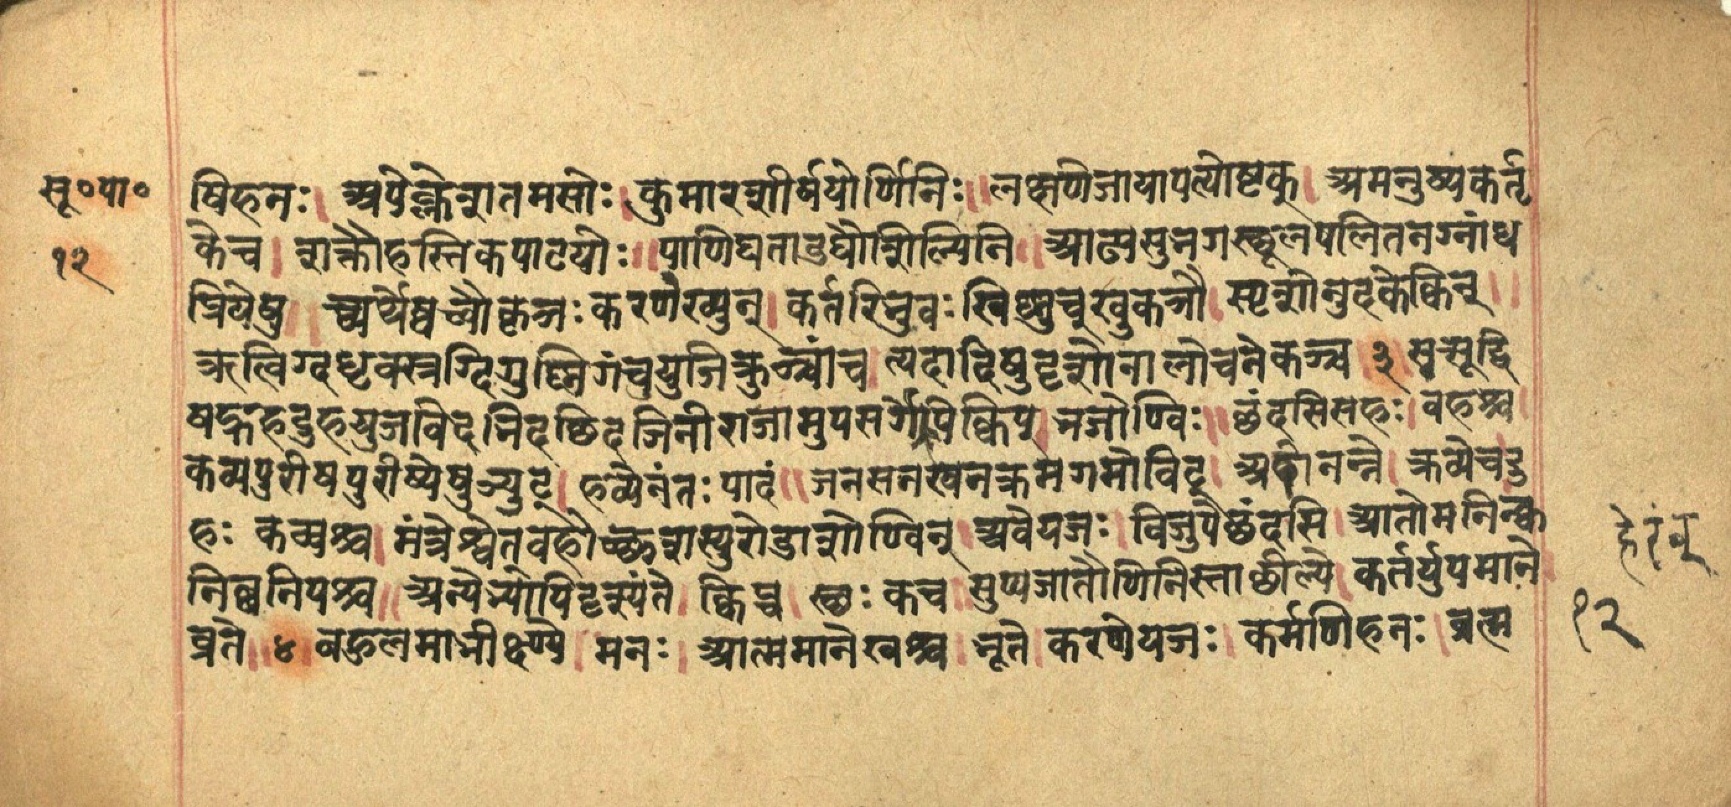 सू॰पा॰
१२
षिहनः । अपेक्लेशतमसोः । कुमारशीर्षयोर्णिनिः ॥ लक्षणेजायापत्योष्टक् । अमनुष्यकर्तृ
केच । शक्तौहस्तिकपाटयोः ॥ पाणिघताडघौशिल्पिनि । आढ्यसुभगस्थूलपलितनग्नांध
प्रियेषु ॥ च्व्यर्थेष्वच्वौकृञः करणेख्युन् । कर्तरिभुवः खिष्णुच्खुकञौ । स्पृशोनुदकेक्विन् ॥
ऋत्विग्दधृक्स्रग्दिगुष्णिगंचुयुजिक्रुञ्चांच । त्यदादिषुदृशोनालोचनेकञ्च ३ सत्सूद्वि
षद्रुहदुहयुजविदभिदछिदजिनीराजामुपसर्गेपिक्विप् । भजोण्विः ॥ छंदसिसहः । वहश्च ।
कव्यपुरीषपुरीष्येषुञ्युट् । हव्येनंतः पादं ॥ जनसनखनक्रमगमोविट् । अदोनन्ने । क्रव्येच । दु
हः कब्घश्च । मंत्रेश्वेतवहोक्थशस्पुरोडाशोण्विन् । अवेयजः । विजुपेछंदसि । आतोमनिन्क्व
निब्वनिपश्च ॥ अन्येभ्योपिदृश्यंते । क्विप्च । स्थः कच । सुप्यजातौणिनिस्ताछील्ये । कर्तर्युपमाने ।
व्रते ॥ ४ ॥ बहुलमाभीक्ष्ण्ये । मनः । आत्ममानेखश्च । भूते । करणेयजः । कर्मणिहनः । ब्रह्म
हेरंब्
१२